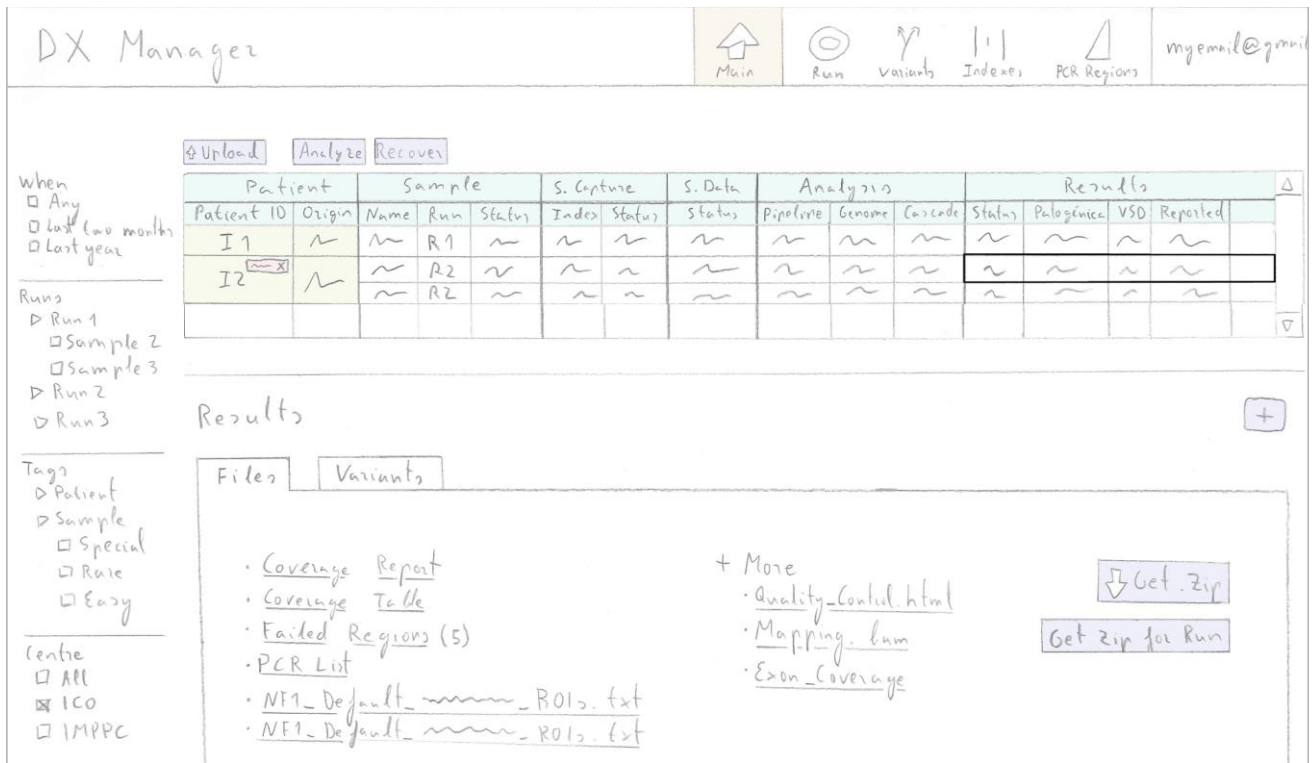 DX Manager
Main
Run
Variants
Indexes
PCR Regions
myemail@gmail
Upload
Analyze
Recover
When
Any
Last two months
Last year
Runs
Run 1
Sample 2
Sample 3
Run 2
Run 3
Tags
Patient
Sample
Special
Rare
Easy
Centre
All
ICO
IMPPC
Patient Sample S. Capture S. Data Analysis Results
Patient ID Origin Name Run Status Index Status Status Pipeline Genome Cascade Status Patogénica VSD Reported
I1 R1
I2 x R2
R2
Results
+
Files
Variants
· Coverage Report
· Coverage Table
· Failed Regions (5)
· PCR List
· NF1_Default_ _ROIs.txt
· NF1_Default_ _ROIs.txt
+ More
· Quality_Control.html
· Mapping.bam
· Exon_Coverage
Get .Zip
Get Zip for Run